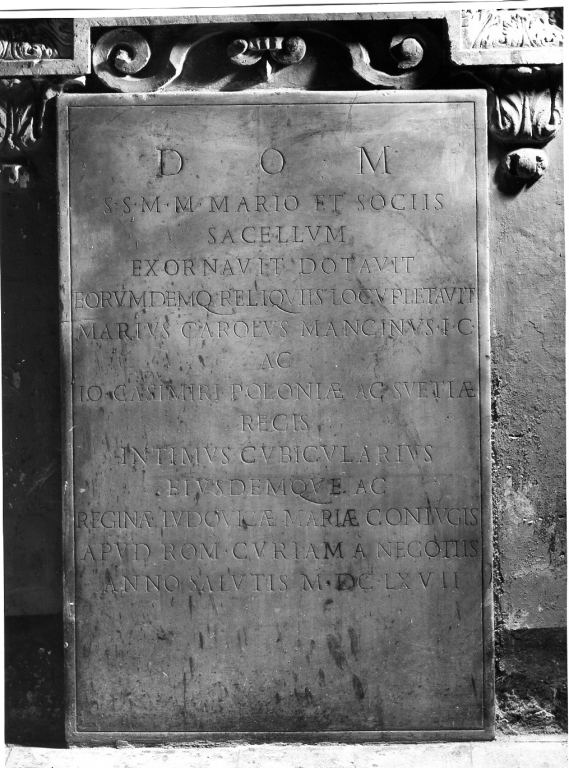 D O M
S·S·M·M·MARIO ET SOCIIS
SACELLVM
EXORNAVIT DOTAVIT
EORVMDEMQ·RELIQVIIS LOCVPLETAVIT
MARIVS CAROLVS MANCINVS·I·C·
AC
IO·CASIMIRI POLONIÆ AC SVETIÆ
REGIS
INTIMVS CVBICVLARIVS
EIVSDEMQVE AC
REGINÆ LVDOVICÆ MARIÆ CONIVGIS
APVD ROM·CVRIAM A NEGOTIIS
ANNO SALVTIS M·DC·LXVII